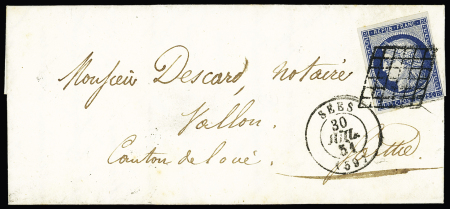 REPUB. FRANC.
Monsieur Descard, Notaire
Vallon.
Canton de Loué.
Sarthe
SEES
30
JUIL.
51
(59)